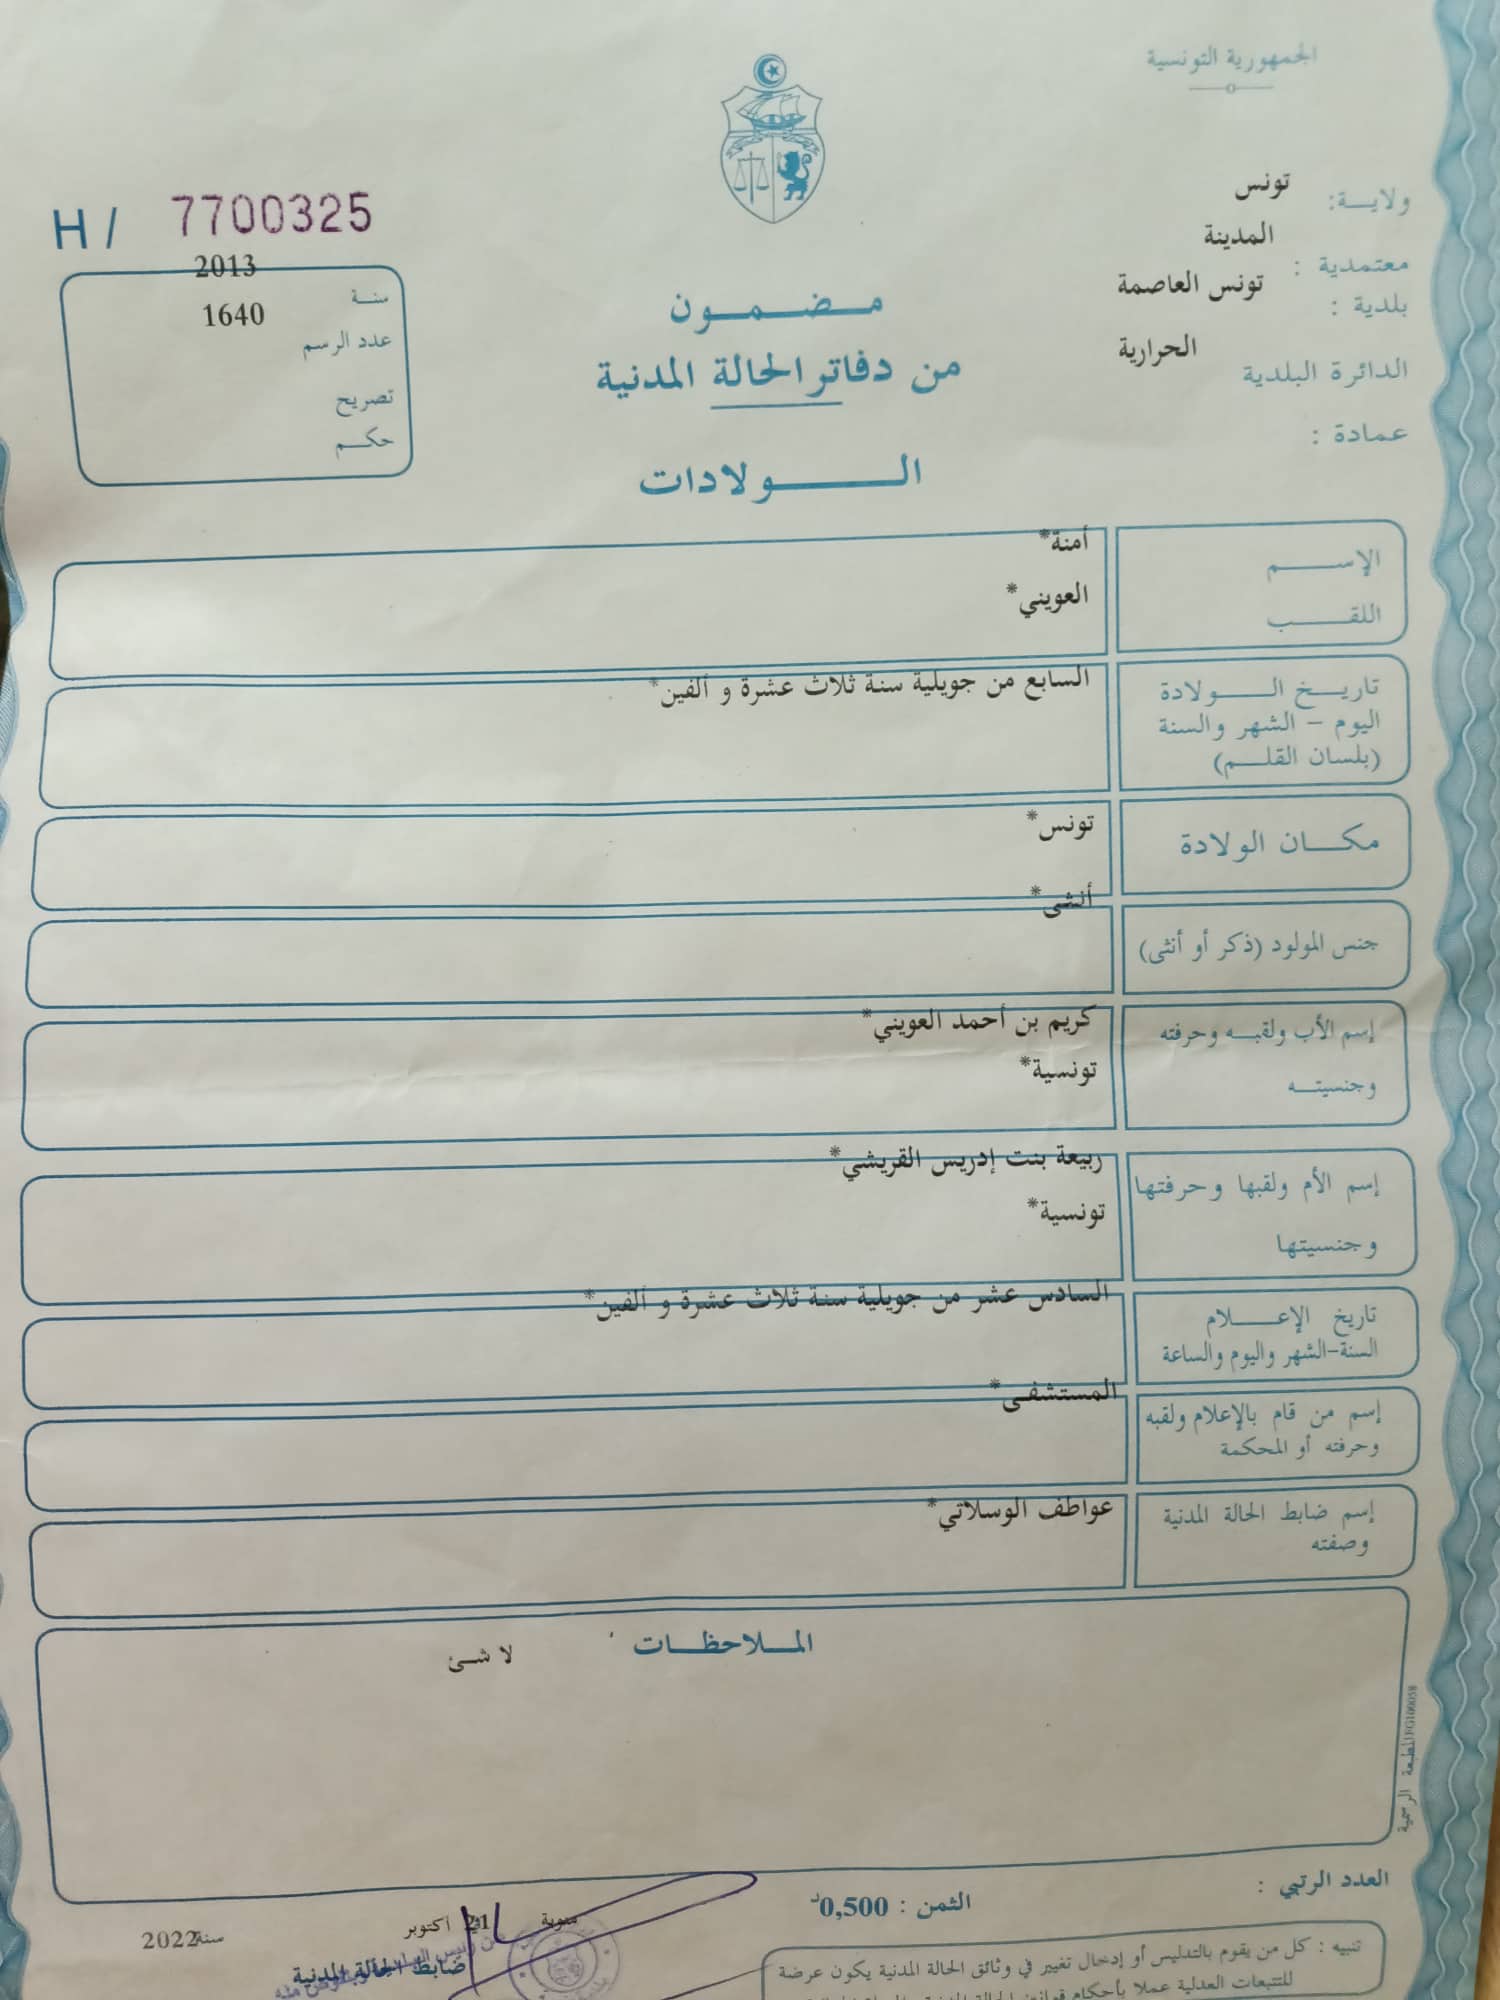 الجمهورية التونسية
ولايــة: تونس
معتمدية : المدينة
بلدية : تونس العاصمة
الدائرة البلدية الحرارية
عمادة :
H / 7700325
2013
سنـة
1640
عدد الرسم
تصريح
حكـم
مـضـمـون
من دفاتر الحالة المدنية
الـولادات
الإســم أمنة*
اللقــب العويني*
تاريـخ الـولادة السابع من جويلية سنة ثلاث عشرة و ألفين*
اليوم – الشهر والسنة
(بلسان القلـم)
مكـان الولادة تونس*
جنس المولود (ذكر أو أنثى) أنثى*
إسم الأب ولقبـه وحرفته كريم بن أحمد العويني*
وجنسيتـه تونسية*
إسم الأم ولقبها وحرفتها ربيعة بنت إدريس القريشي*
وجنسيتها تونسية*
تاريخ الإعـلام السادس عشر من جويلية سنة ثلاث عشرة و ألفين*
السنة-الشهر واليوم والساعة
إسم من قام بالإعلام ولقبه المستشفى*
وحرفته أو المحكمة
إسم ضابط الحالة المدنية عواطف الوسلاتي*
وصفته
الملاحظـات لا شئ
المطبعة الرسمية FG100058
العدد الرتبي :
الثمن : 0,500د
21 اكتوبر سنة 2022
ضابط الحالة المدنية
تنبيه : كل من يقوم بالتدليس أو إدخال تغيير في وثائق الحالة المدنية يكون عرضة
للتتبعات العدلية عملا بأحكام